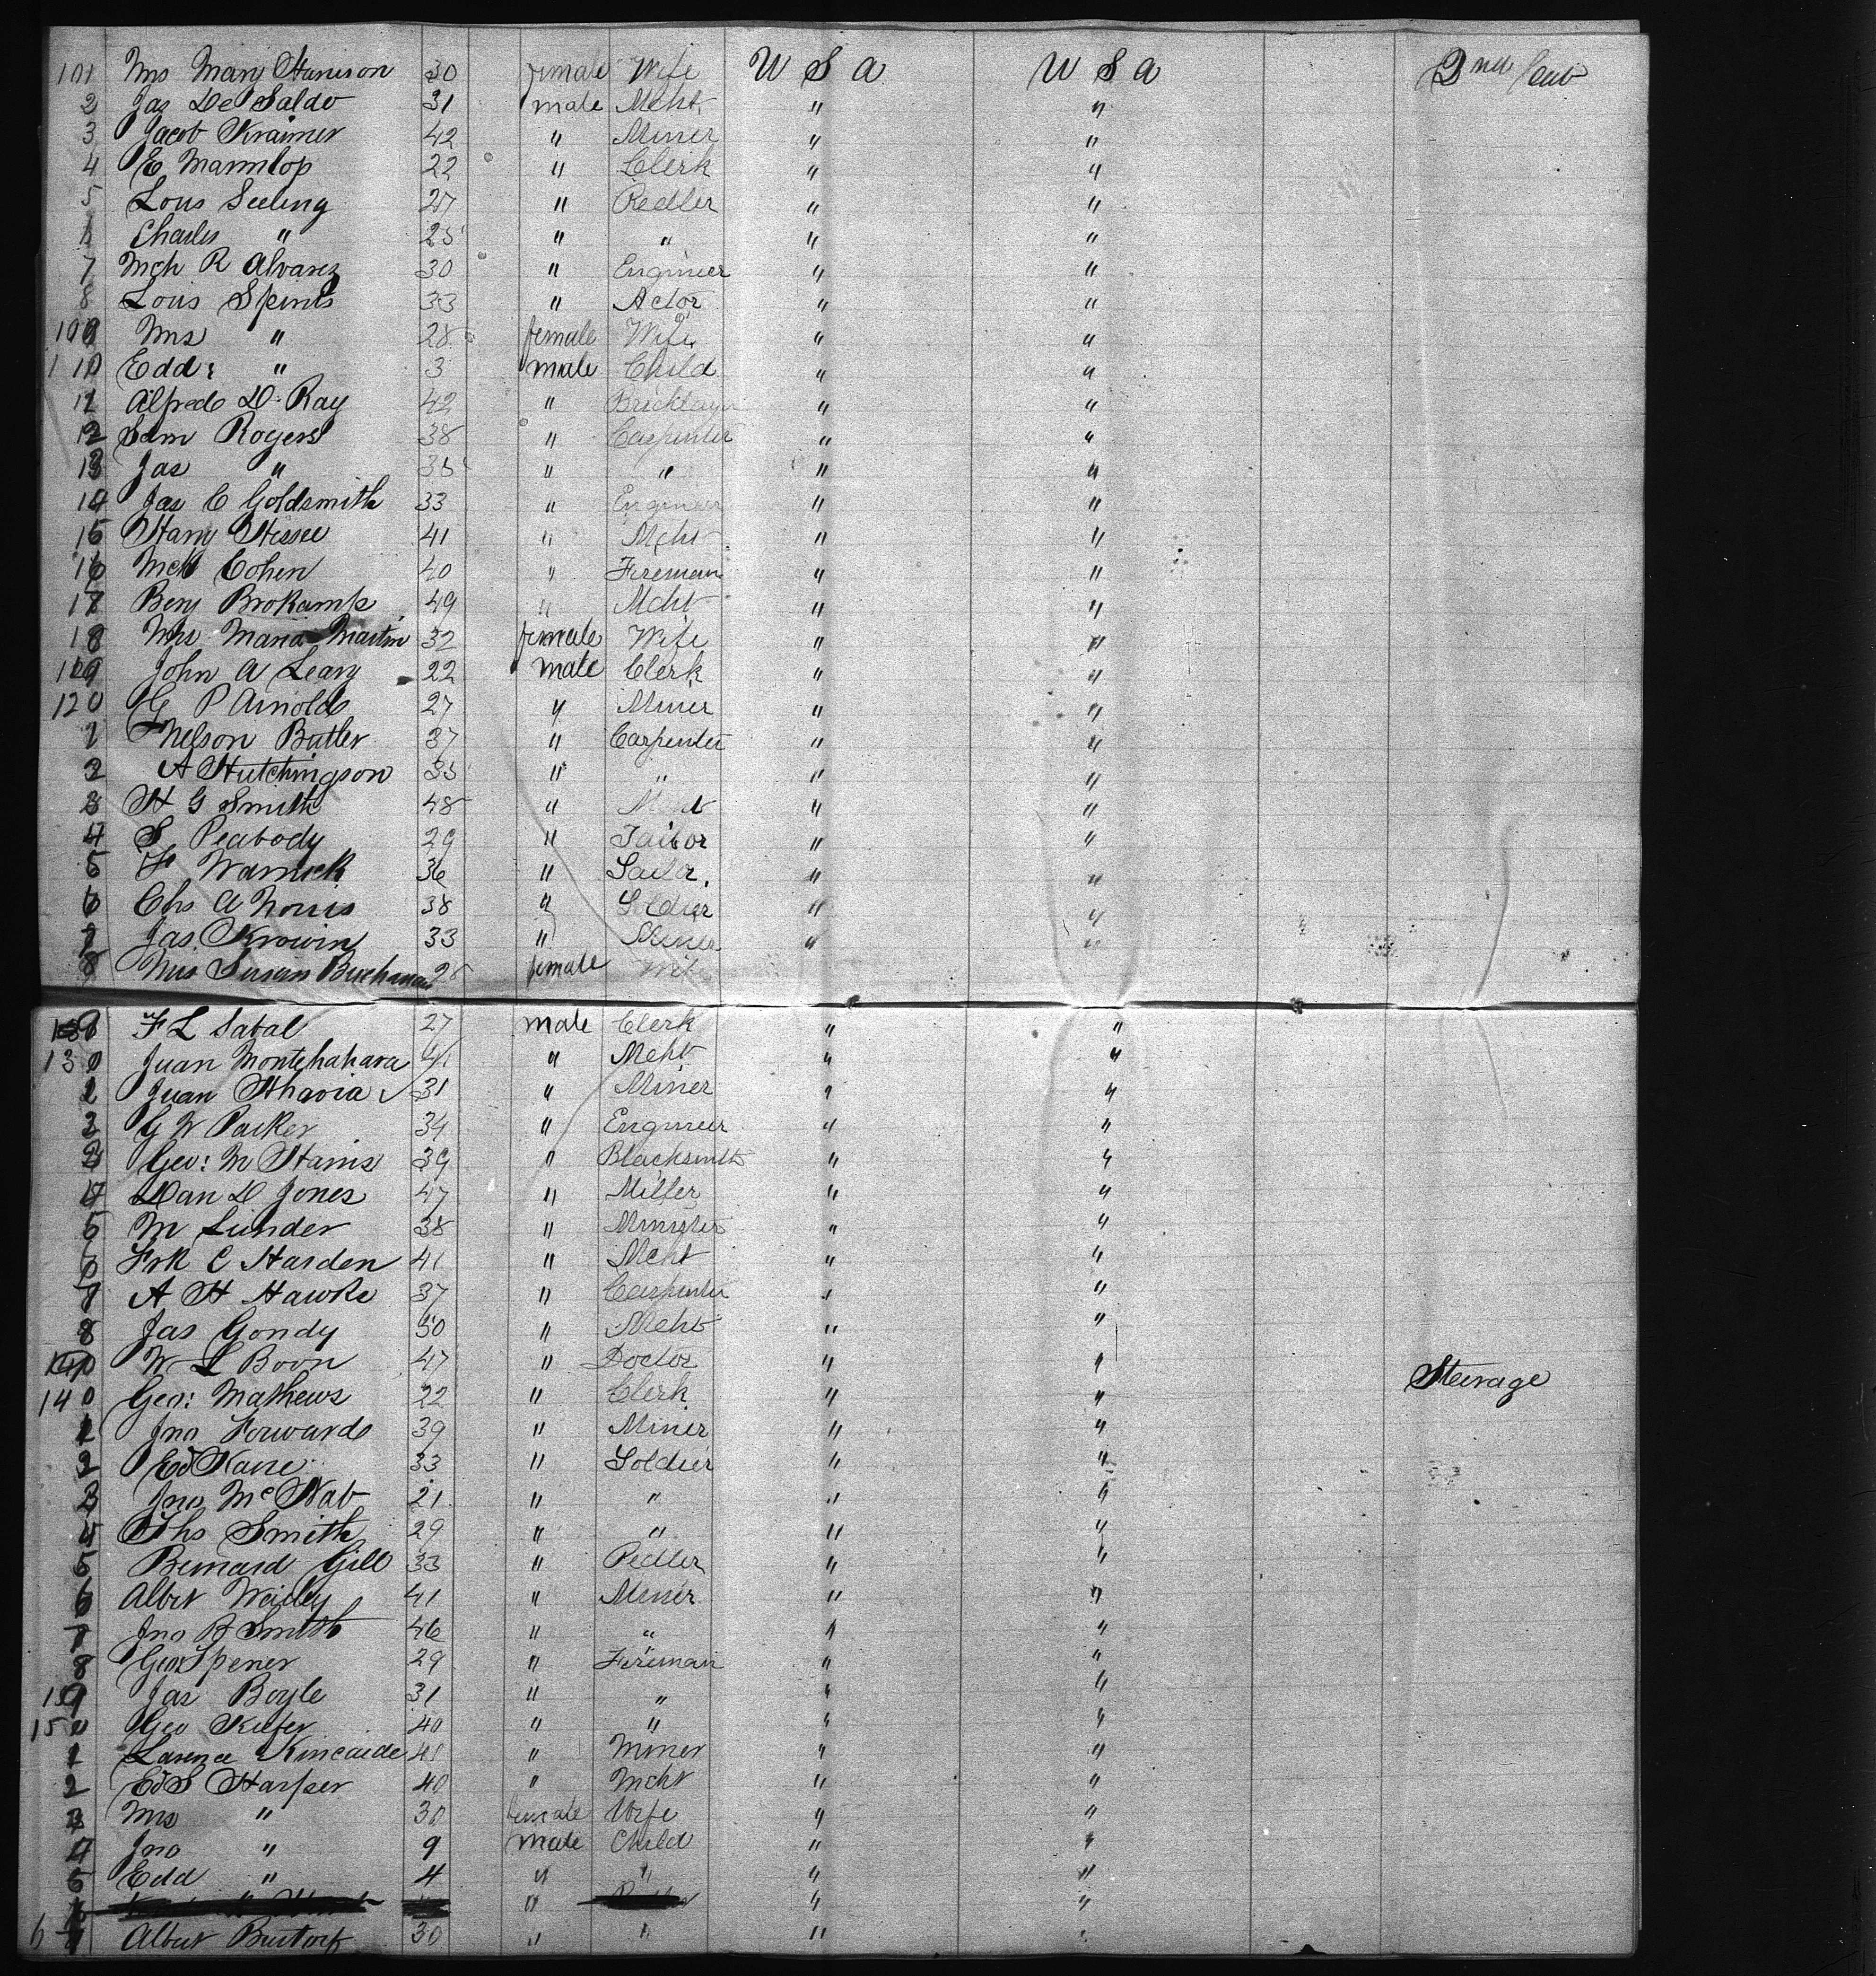 101 Mrs Mary Harrison 30 female Wife U S A U S A 2nd Cab
2 Jas De Saldo 31 male Mcht " "
3 Jacob Kramer 42 " Miner " "
4 E 22 " Clerk " "
5 Lous Seeling 27 " Pedler " "
6 Charles " 25 " " " "
7 Mch R Alvarez 30 " Engineer " "
8 Louis 33 " Actor " "
109 Mrs " 28 female Wife " "
110 Edd: " 3 male Child " "
11 Alfred D. Ray 42 " Bricklayer " "
12 Sam Rogers 38 " Carpenter " "
13 Jas " 35 " " " "
14 Jas C Goldsmith 33 " Engineer " "
15 Harry 41 " Mcht " "
16 Mch Cohen 40 " Fireman " "
17 Benj Brokamp 49 " Mcht " "
18 Mrs Maria Martin 32 female Wife " "
119 John A Leary 22 male Clerk " "
120 G P Arnold 27 " Miner " "
1 Nelson Butler 37 " Carpenter " "
2 A Hutchingson 35 " " " "
3 H G Smith 48 " Mcht " "
4 S. Peabody 29 " Tailor " "
5 F Warrick 36 " Sailor " "
6 Chs A Norris 38 " Soldier " "
7 Jas. Krowin 33 " Miner " "
8 Mrs Susan Buchanan 28 female Wife
F L Sabal 27 male Clerk " "
130 Juan 41 " Mcht " "
1 Juan 31 " Miner " "
2 G W Parker 34 " Engineer " "
3 Geo: M Harris 39 " Blacksmith " "
4 Dan D Jones 47 " Miller " "
5 M Lunder 38 " Minister " "
6 Frk C Harden 41 " Mcht " "
7 A H Hawke 37 " Carpenter " "
8 Jas Gondy 50 " Mcht " "
W L Boon 47 " Doctor " "
140 Geo: Mathews 22 " Clerk " " Steerage
1 Jno Forward 39 " Miner " "
2 Ed Kane 33 " Soldier " "
3 Jno McNab 21 " " " "
4 Ths Smith 29 " " " "
5 Bernard Gill 33 " Pedler " "
6 Albert 41 " Miner " "
7 Jno B Smith 46 " " " "
8 Geo Spener 29 " Fireman " "
9 Jas Boyle 31 " " " "
150 Geo Kiefer 40 " " " "
1 Larence Kincaide 41 " Miner " "
2 Ed S Harper 40 " Mcht " "
3 Mrs " 30 female Wife " "
4 Jno " 9 male Child " "
5 Edd " 4 " " " "
" " "
6 Albert 30 " " "